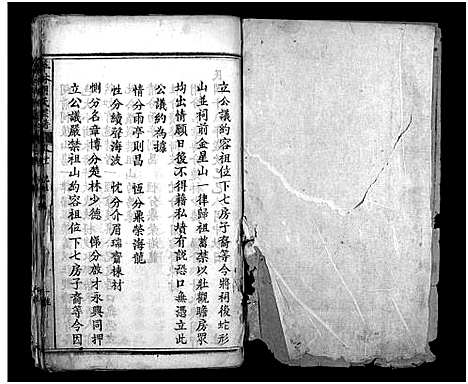 立公議約容祖位下七房子裔等今將祠後蛇形
山並祠前金星山一律歸祖蓄禁以壯觀瞻房眾
均出情願日後不得藉私墳有説恐口無憑立此
公議約為據
情分雨亭則昌　恆分鼎榮海龍
性分績聲海波　忱分介眉瑞齋棟材
惻分名章博分楚林少德　悌分雄才永興同押
立公議嚴禁祖山約容祖位下七房子裔等今因